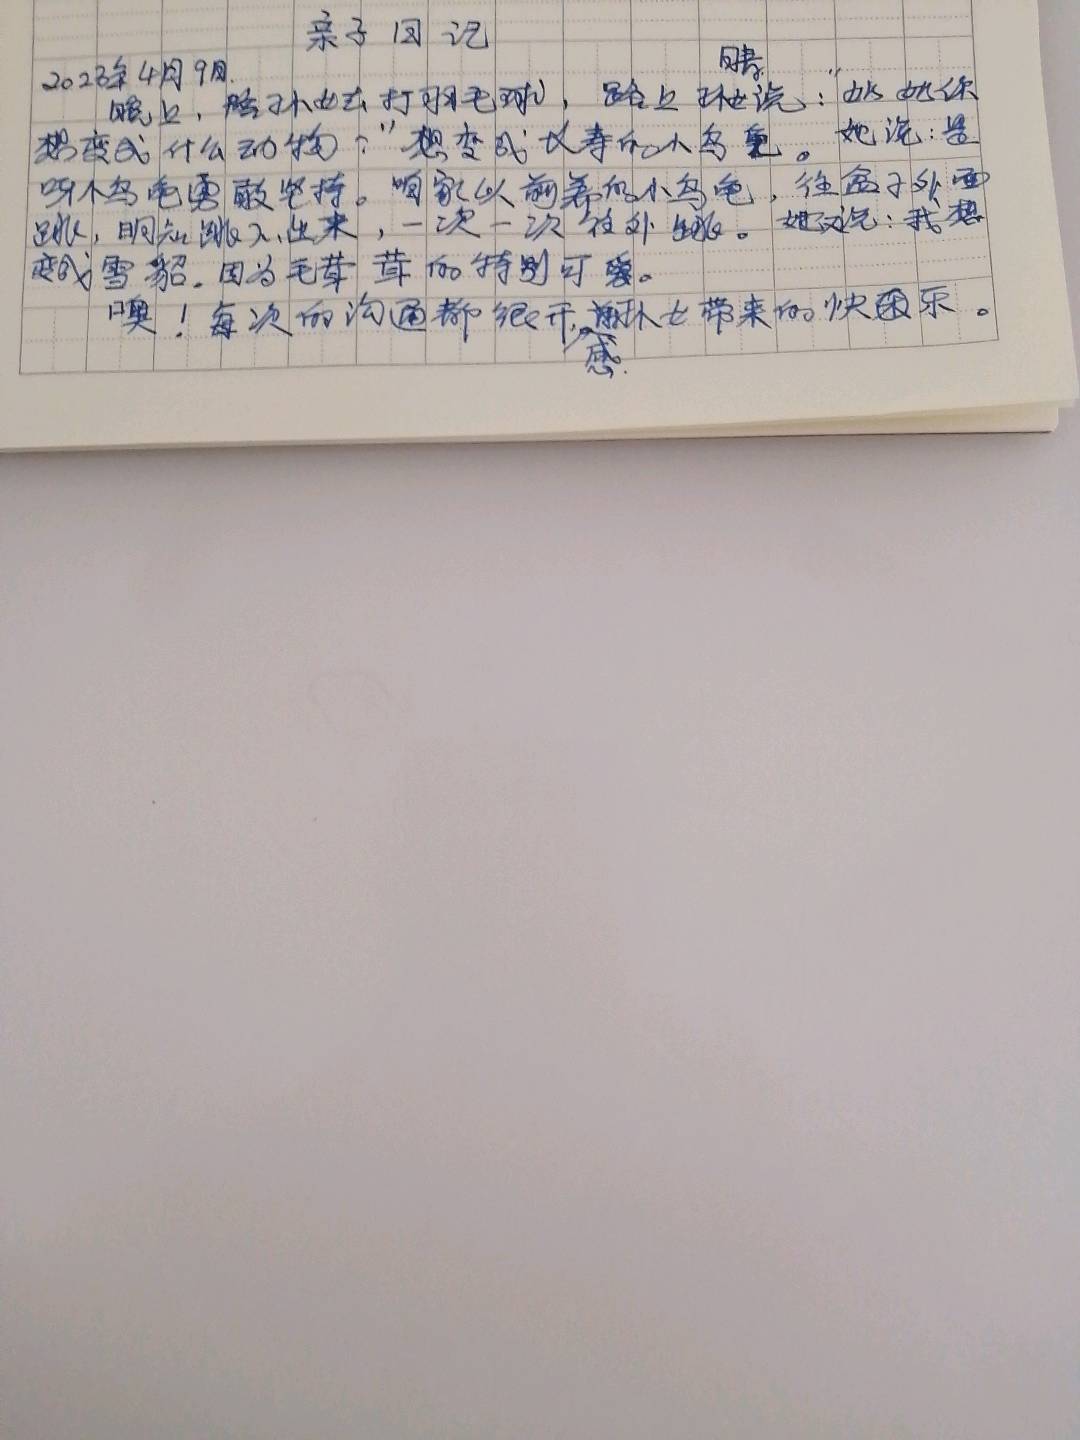 亲子日记
2023年4月9日.
晚上，陪孙女去打羽毛球，路上孙女说：“奶奶你
想变成什么动物？”想变成长寿的小乌龟。她说：是
呀小乌龟勇敢坚持。咱家以前养的小乌龟，往盆子外面
跳，明知跳不出来，一次一次往外跳。她又说：我想
变成雪貂。因为毛茸茸的特别可爱。
噢！每次的沟通都很开，感谢孙女带来的快乐。